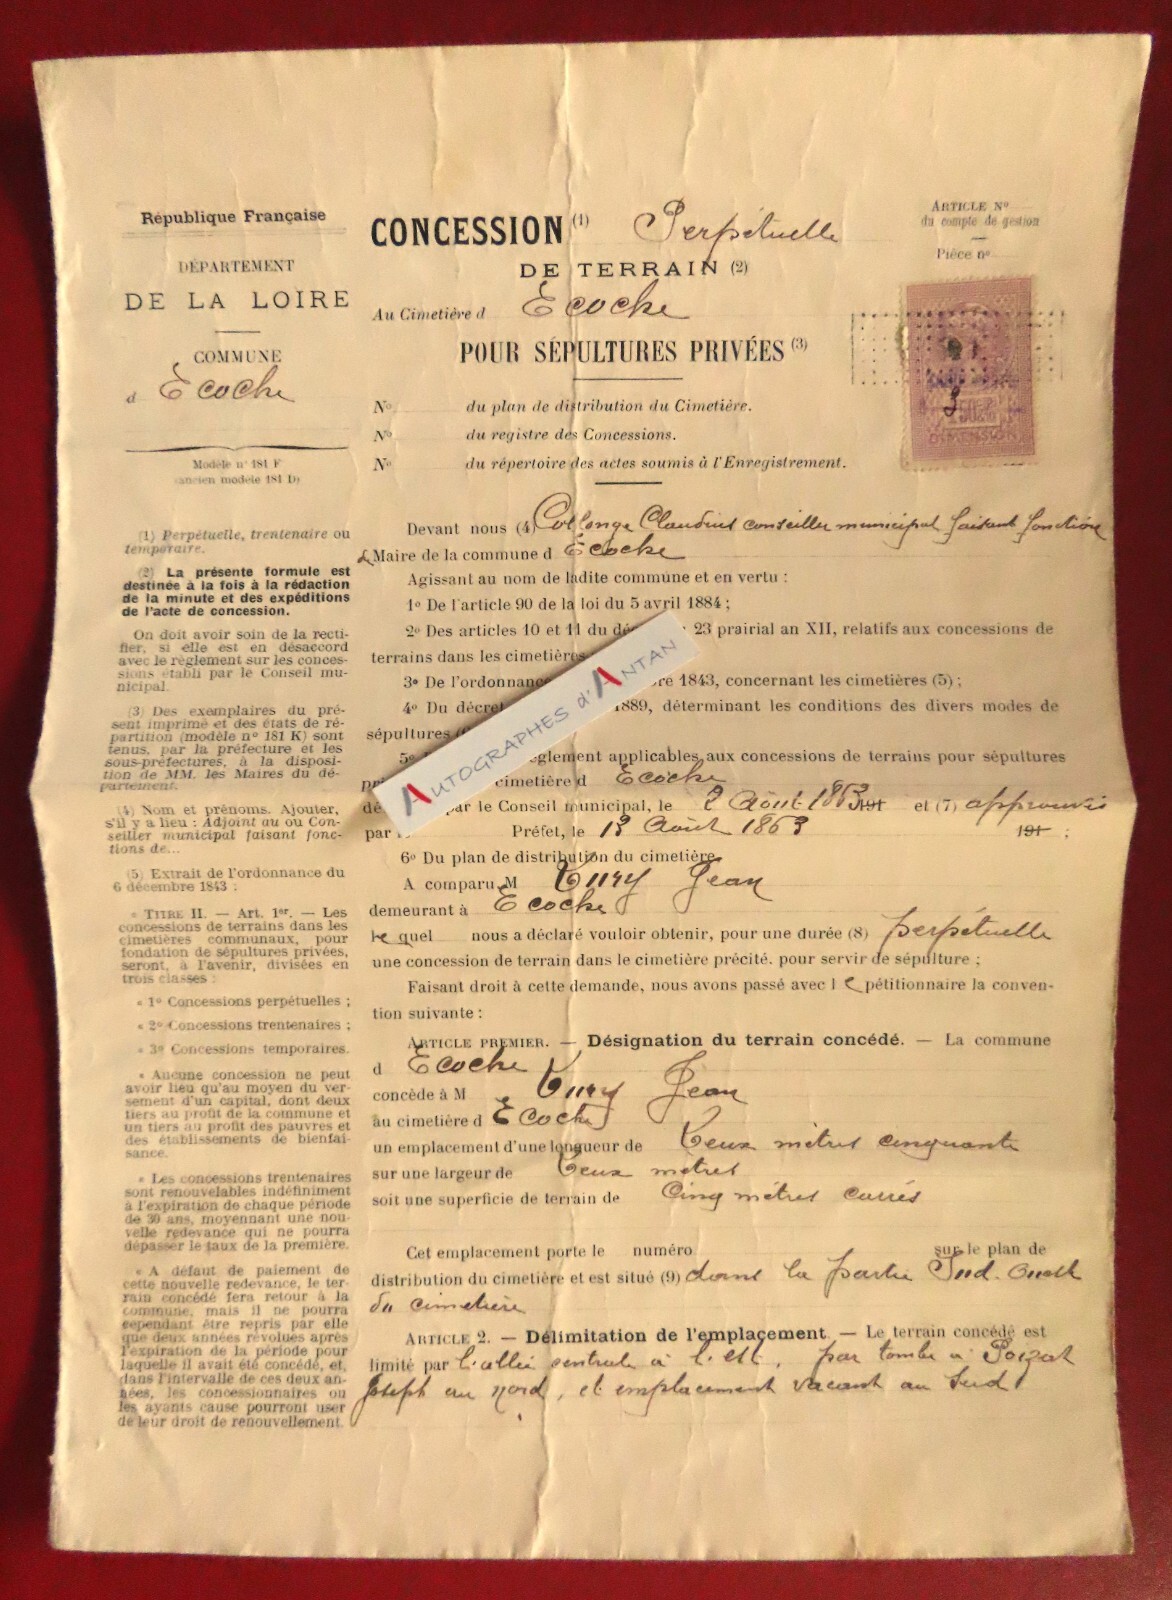 République Française
DÉPARTEMENT
DE LA LOIRE
COMMUNE
d Ècoche
Modèle n° 181 F
(ancien modèle 181 D)
(1) Perpétuelle, trentenaire ou
temporaire.
(2) La présente formule est
destinée à la fois à la rédaction
de la minute et des expéditions
de l'acte de concession.
On doit avoir soin de la recti-
fier, si elle est en désaccord
avec le règlement sur les conces-
sions établi par le Conseil mu-
nicipal.
(3) Des exemplaires du pré-
sent imprimé et des états de ré-
partition (modèle n° 181 K) sont
tenus, par la préfecture et les
sous-préfectures, à la disposi-
tion de MM. les Maires du dé-
partement.
(4) Nom et prénoms. Ajouter,
s'il y a lieu : Adjoint au ou Con-
seiller municipal faisant fonc-
tions de...
(5) Extrait de l'ordonnance du
6 décembre 1843 :
« TITRE II. — Art. 1er. — Les
concessions de terrains dans les
cimetières communaux, pour
fondation de sépultures privées,
seront, à l'avenir, divisées en
trois classes :
« 1° Concessions perpétuelles ;
« 2° Concessions trentenaires ;
« 3° Concessions temporaires.
« Aucune concession ne peut
avoir lieu qu'au moyen du ver-
sement d'un capital, dont deux
tiers au profit de la commune et
un tiers au profit des pauvres et
des établissements de bienfai-
sance.
« Les concessions trentenaires
sont renouvelables indéfiniment
à l'expiration de chaque période
de 30 ans, moyennant une nou-
velle redevance qui ne pourra
dépasser le taux de la première.
« A défaut de paiement de
cette nouvelle redevance, le ter-
rain concédé fera retour à la
commune, mais il ne pourra
cependant être repris par elle
que deux années révolues après
l'expiration de la période pour
laquelle il avait été concédé, et,
dans l'intervalle de ces deux an-
nées, les concessionnaires ou
les ayants cause pourront user
de leur droit de renouvellement.
CONCESSION (1) Perpétuelle
DE TERRAIN (2)
Au Cimetière d Ècoche
POUR SÉPULTURES PRIVÉES (3)
N° du plan de distribution du Cimetière.
N° du registre des Concessions.
N° du répertoire des actes soumis à l'Enregistrement.
ARTICLE N°
du compte de gestion
Pièce n°
DIMENSION
Devant nous (4) Collonge Claudius conseiller municipal faisant fonction
de Maire de la commune d Ècoche
Agissant au nom de ladite commune et en vertu :
1° De l'article 90 de la loi du 5 avril 1884 ;
2° Des articles 10 et 11 du 23 prairial an XII, relatifs aux concessions de
terrains dans les cimetières
3° De l'ordonnance 1843, concernant les cimetières (5) ;
4° Du décret 1889, déterminant les conditions des divers modes de
sépultures
5° applicables aux concessions de terrains pour sépultures
cimetière d Ècoche
par le Conseil municipal, le 2 Août 1863 191 et (7) approuvés
par Préfet, le 13 Août 1863 191 ;
6° Du plan de distribution du cimetière.
A comparu M Jean
demeurant à Ècoche
lequel nous a déclaré vouloir obtenir, pour une durée (8) perpétuelle
une concession de terrain dans le cimetière précité, pour servir de sépulture ;
Faisant droit à cette demande, nous avons passé avec le pétitionnaire la conven-
tion suivante :
ARTICLE PREMIER. — Désignation du terrain concédé. — La commune
d Ècoche
concède à M Jean
au cimetière d Ècoche
un emplacement d'une longueur de Deux mètres cinquante
sur une largeur de Deux mètres
soit une superficie de terrain de Cinq mètres carrés
Cet emplacement porte le numéro sur le plan de
distribution du cimetière et est situé (9) dans la partie Sud-Ouest
du cimetière
ARTICLE 2. — Délimitation de l'emplacement. — Le terrain concédé est
limité par l'allée centrale à l'est, par tombe à Poizat
Joseph au nord, et emplacement vacant au Sud
AUTOGRAPHES d'ANTAN